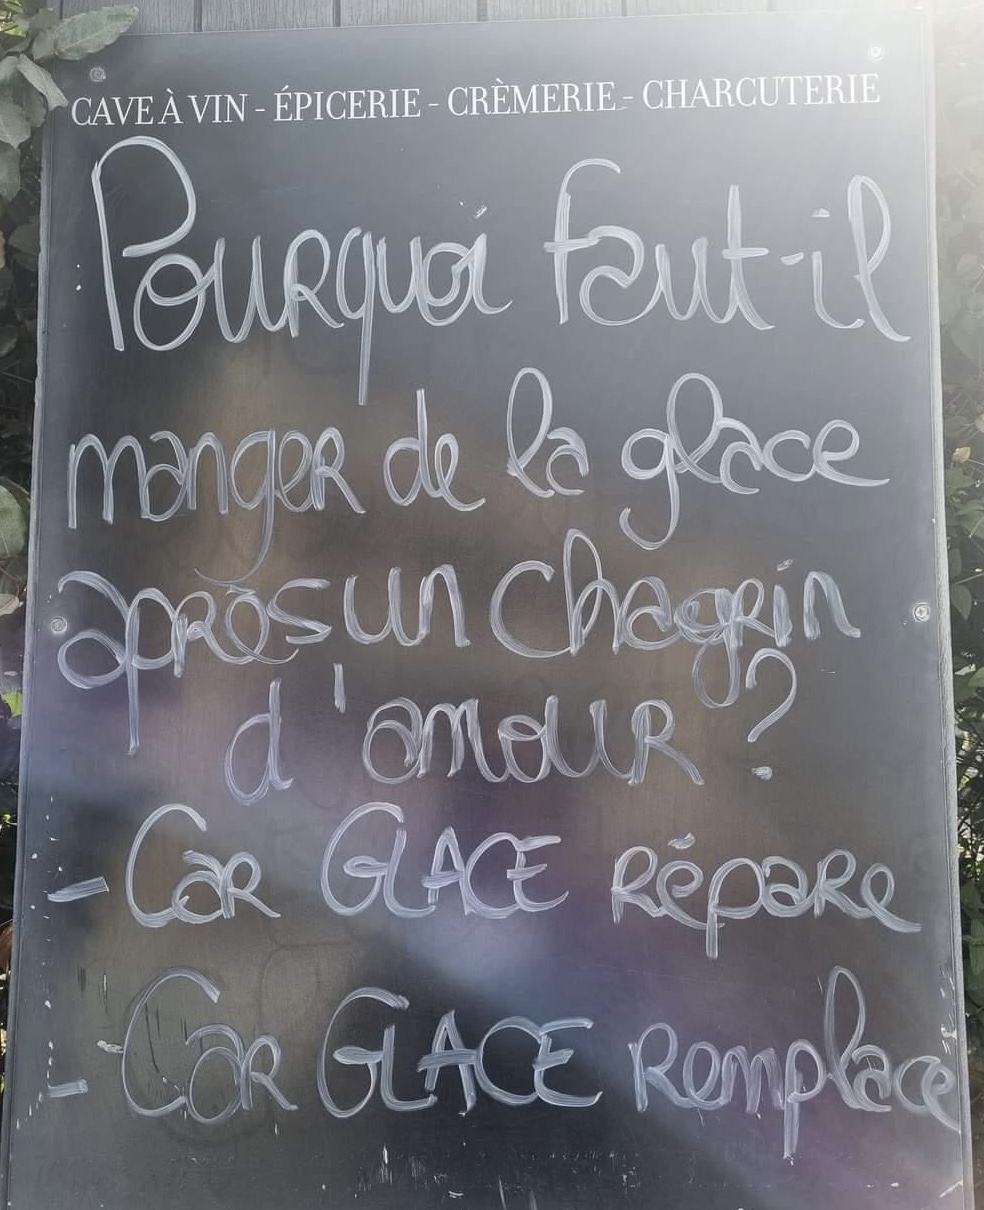 CAVE À VIN - ÉPICERIE - CRÈMERIE - CHARCUTERIE
Pourquoi faut-il
manger de la glace
après un chagrin
d'amour ?
- Car GLACE répare
- Car GLACE remplace